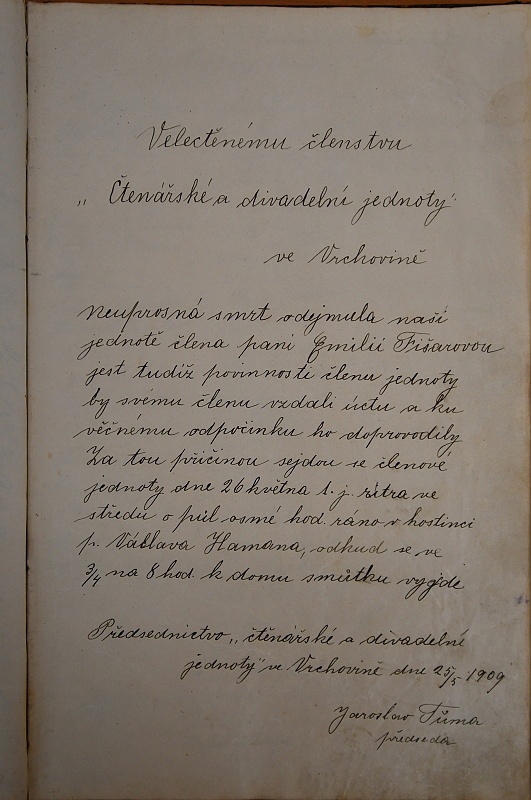 Velectěnému členstvu
„Čtenářské a divadelní jednoty"
ve Vrchovině
Neuprosná smrt odejmula naší
jednotě člena paní Emilii Fišarovou
jest tudíž povinností členu jednoty
by svému členu vzdali úctu a ku
věčnému odpočinku ho doprovodily
Za tou příčinou sejdou se členové
jednoty dne 26 května t. j. zítra ve
středu o půl osmé hod. ráno v hostinci
p. Václava Hamana, odkud se ve
3/4 na 8 hod. k domu smutku vyjde
Předsednictvo „čtěnářské a divadelní
jednoty" ve Vrchovině dne 25/5 1909
Jaroslav Tůma
předseda